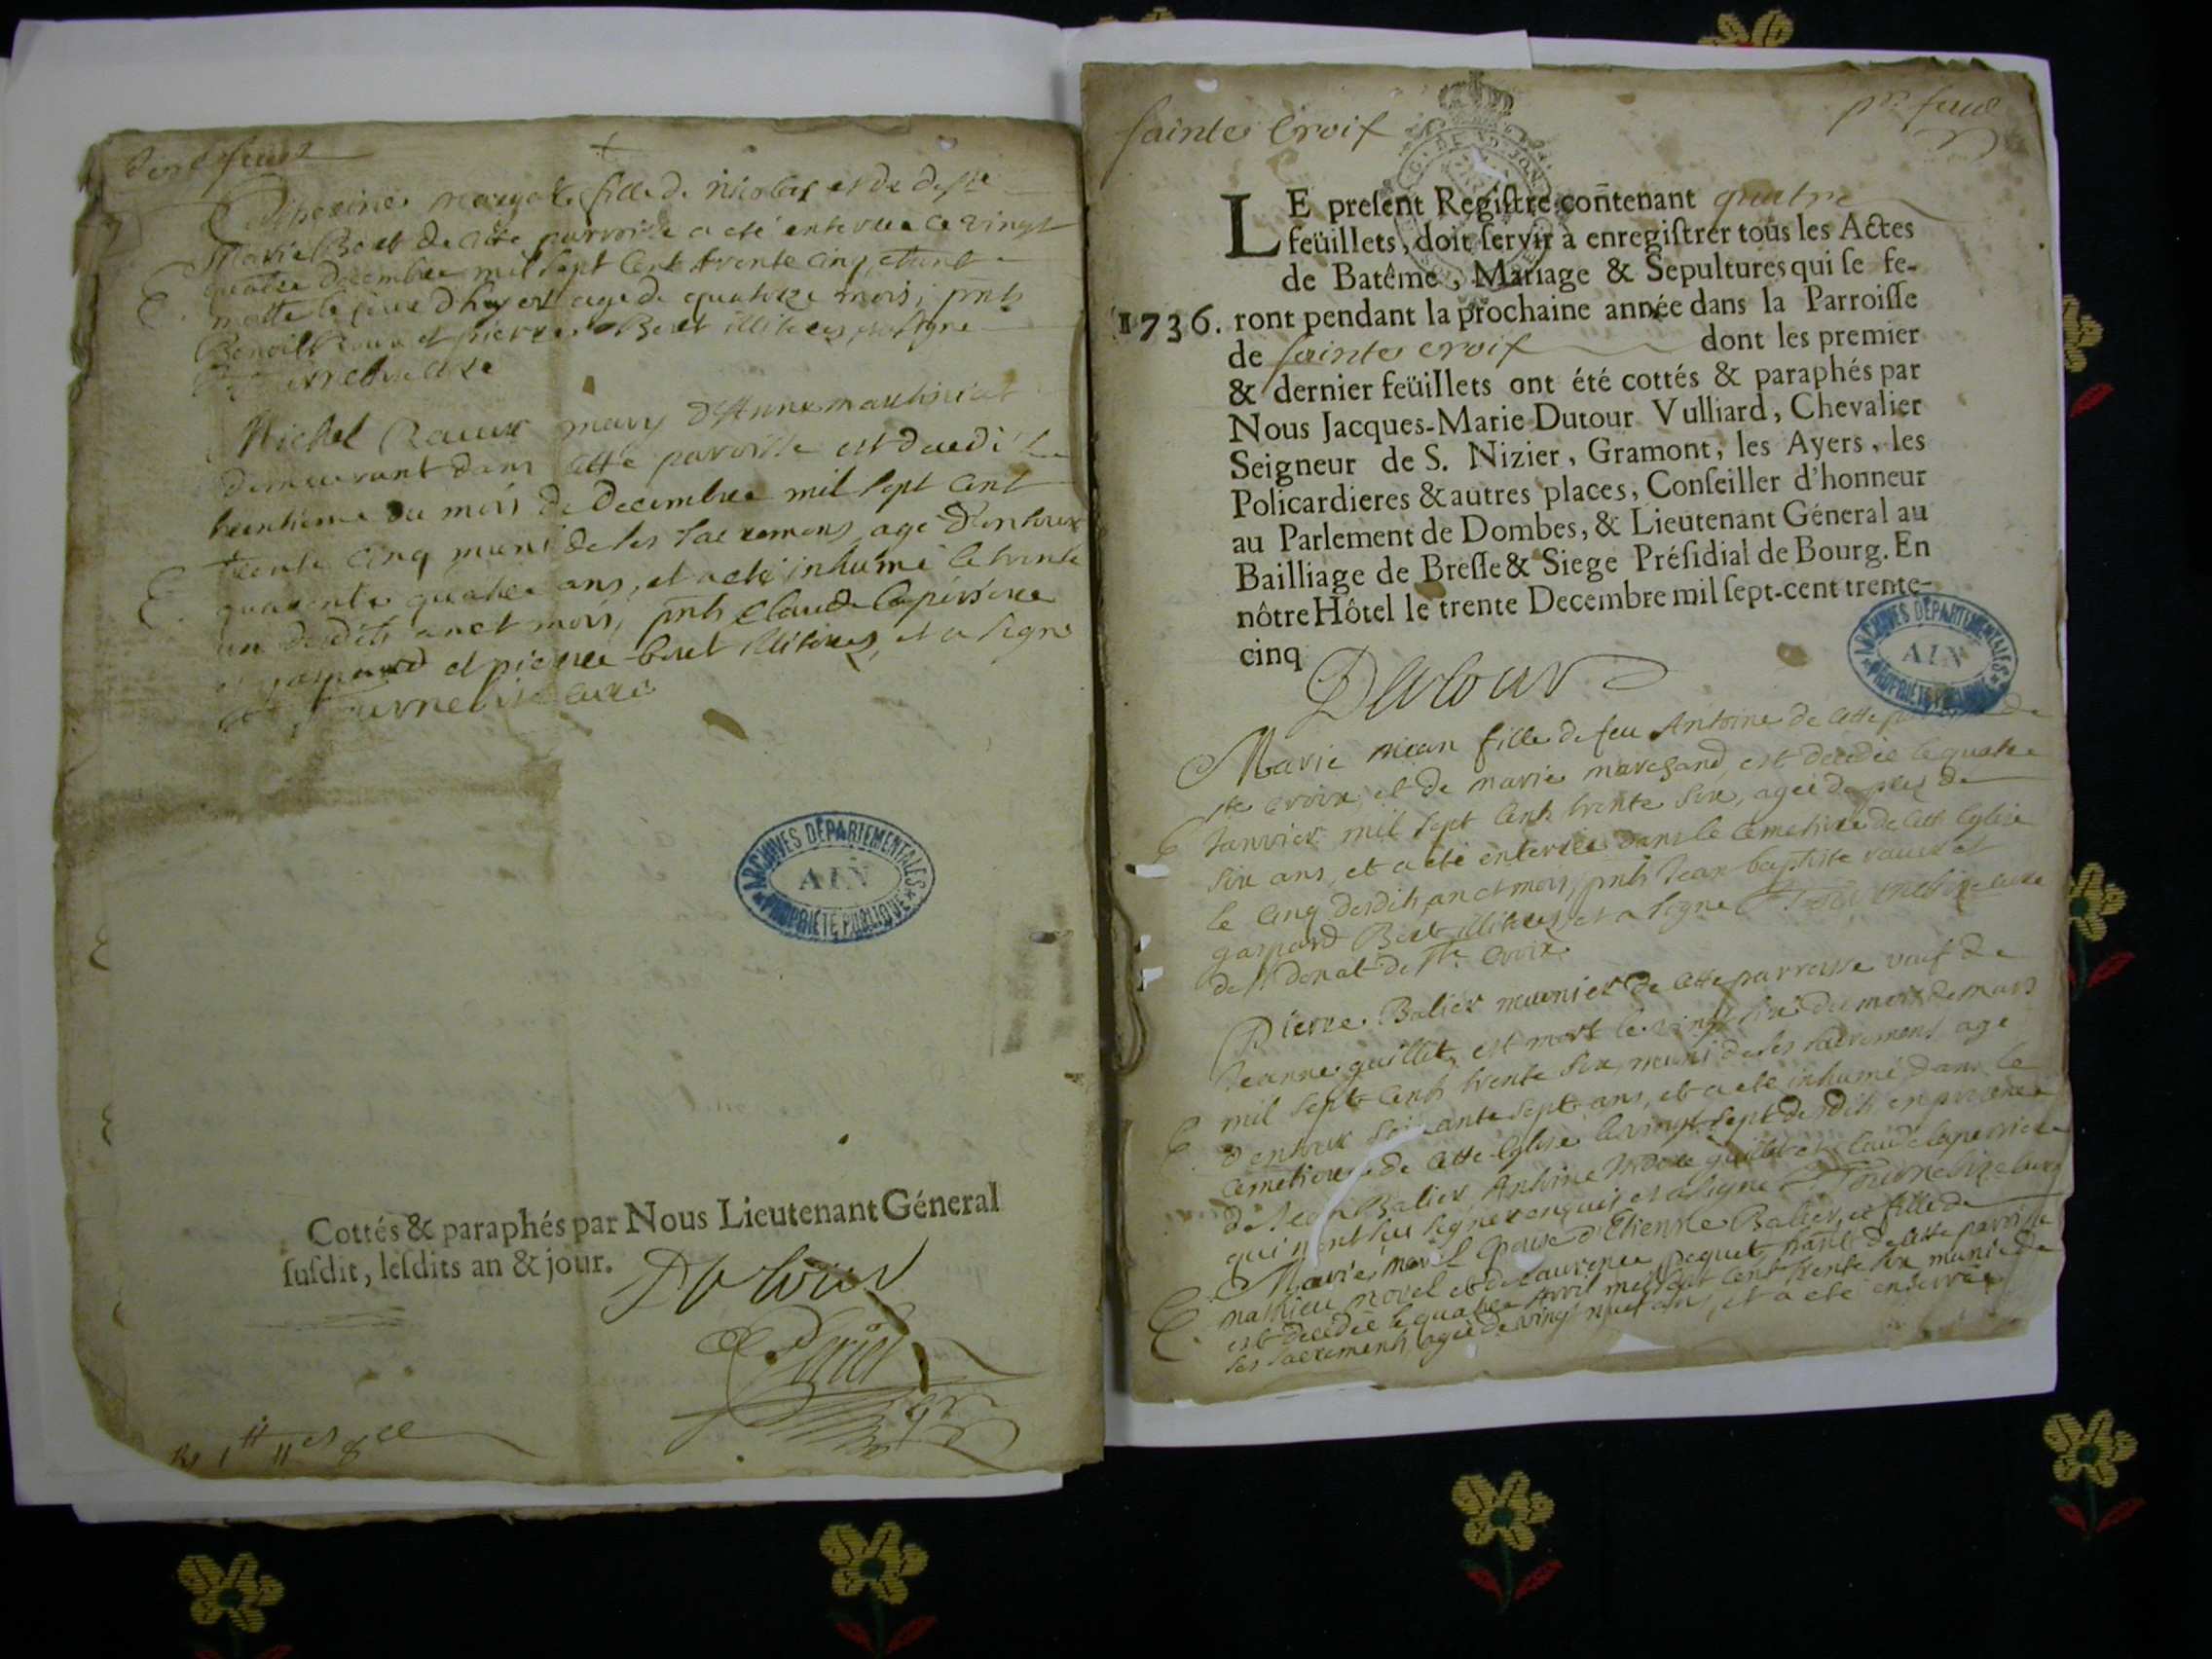 Margot fille de Nicolas et de
Marie Boet de cette parroisse a eté enterrée ce vingt
quatre decembre mil sept cent trente cinq etant
morte le jour d'hyer agé de quatorze mois, pnts
Benoit et pierre Boet illiteres, et a signe
curé
Michel Raeur mary d'Anne
demeurant dans cette paroisse est decedé le
trentieme du mois de Decembre mil sept cent
trente cinq muni de ses sacremens, agé d'environ
quarente quatre ans, et a eté inhumé le trente
un desdits an et mois, pnts Claude Laperriere
et pierre boet illiteres, et a signe
Tournelize curé
ARCHIVES DÉPARTEMENTALES
AIN
PROPRIÉTÉ PUBLIQUE
Cottés & paraphés par Nous Lieutenant Géneral
suſdit, leſdits an & jour.
Dutour
sainte Croix
pr. feuil
LE preſent Regiſtre conténant quatre
feüillets, doit ſervir à enregiſtrer tous les Actes
de Batême, Mariage & Sepultures qui ſe fe-
1736. ront pendant la prochaine année dans la Parroiſſe
de sainte croix dont les premier
& dernier feüillets ont été cottés & paraphés par
Nous Jacques-Marie Dutour Vulliard, Chevalier
Seigneur de S. Nizier, Gramont, les Ayers, les
Policardieres & autres places, Conſeiller d'honneur
au Parlement de Dombes, & Lieutenant Géneral au
Bailliage de Breſſe & Siege Préſidial de Bourg. En
nôtre Hôtel le trente Decembre mil ſept-cent trente-
cinq
Dutour
ARCHIVES DÉPARTEMENTALES
AIN
PROPRIÉTÉ PUBLIQUE
Marie fille de feu Antoine de cette
ste croix, et de marie marchand, est decedée le quatre
Janvier mil sept cent trente six, agée de plus de
six ans, et a eté enterrée dans le cemetiere de cette Eglise
le cinq desdits an et mois, pnts Jean baptiste raeur et
gaspard Boet illiteres, et a signe Tournelize curé
de st donat de ste Croix.
Pierre Balier meunier de cette parroisse veuf de
Jeanne guillet, est mort le vingt six du mois de mars
mil sept cent trente six, muni de ses sacremens, agé
d'environ soixante sept ans, et a eté inhumé dans le
cemetiere de cette Eglise le vingt sept desdits en presence
de Jean Balier, Antoine guillet et Claude Laperriere
qui n'ont su signer enquis et a signe Tournelize curé
Marie morel Epouse d'Etienne Balier, et fille de
mathieu morel et de Laurence paquet, de cette parroisse
est decedée le quatre Avril mil sept cent trente six munie de
ses sacrements, agée de vingt neuf ans, et a eté enterrée